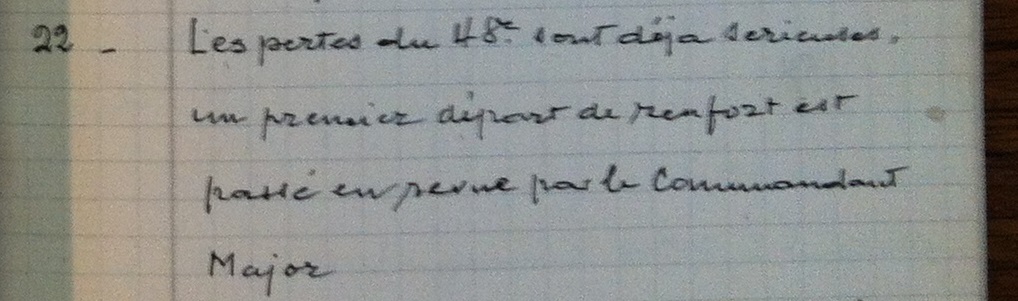 22 - Les pertes du 48e sont déja serieuses.
un premier départ de renfort est
passé en revue par le Commandant
Major